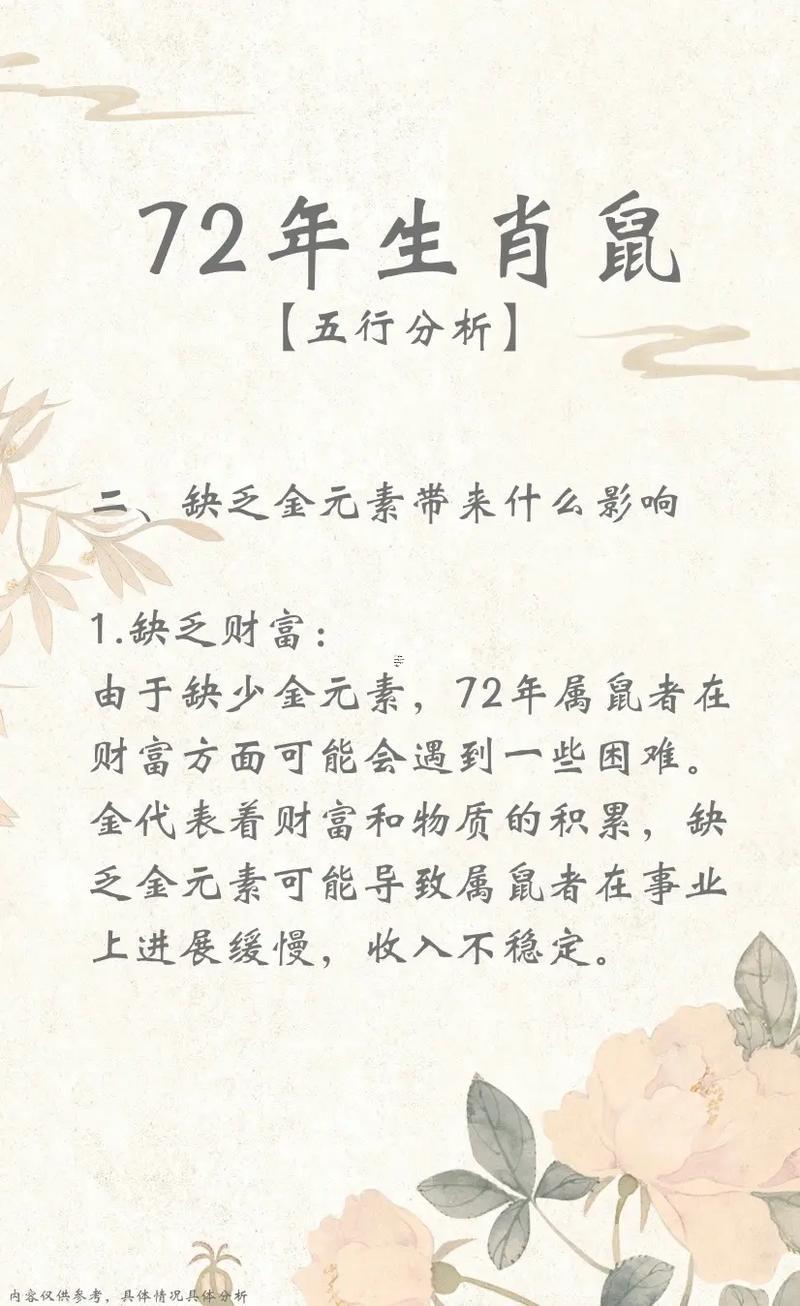 72年生肖鼠
【五行分析】
二、缺乏金元素带来什么影响
1.缺乏财富：
由于缺少金元素，72年属鼠者在
财富方面可能会遇到一些困难。
金代表着财富和物质的积累，缺
乏金元素可能导致属鼠者在事业
上进展缓慢，收入不稳定。
内容仅供参考，具体情况具体分析